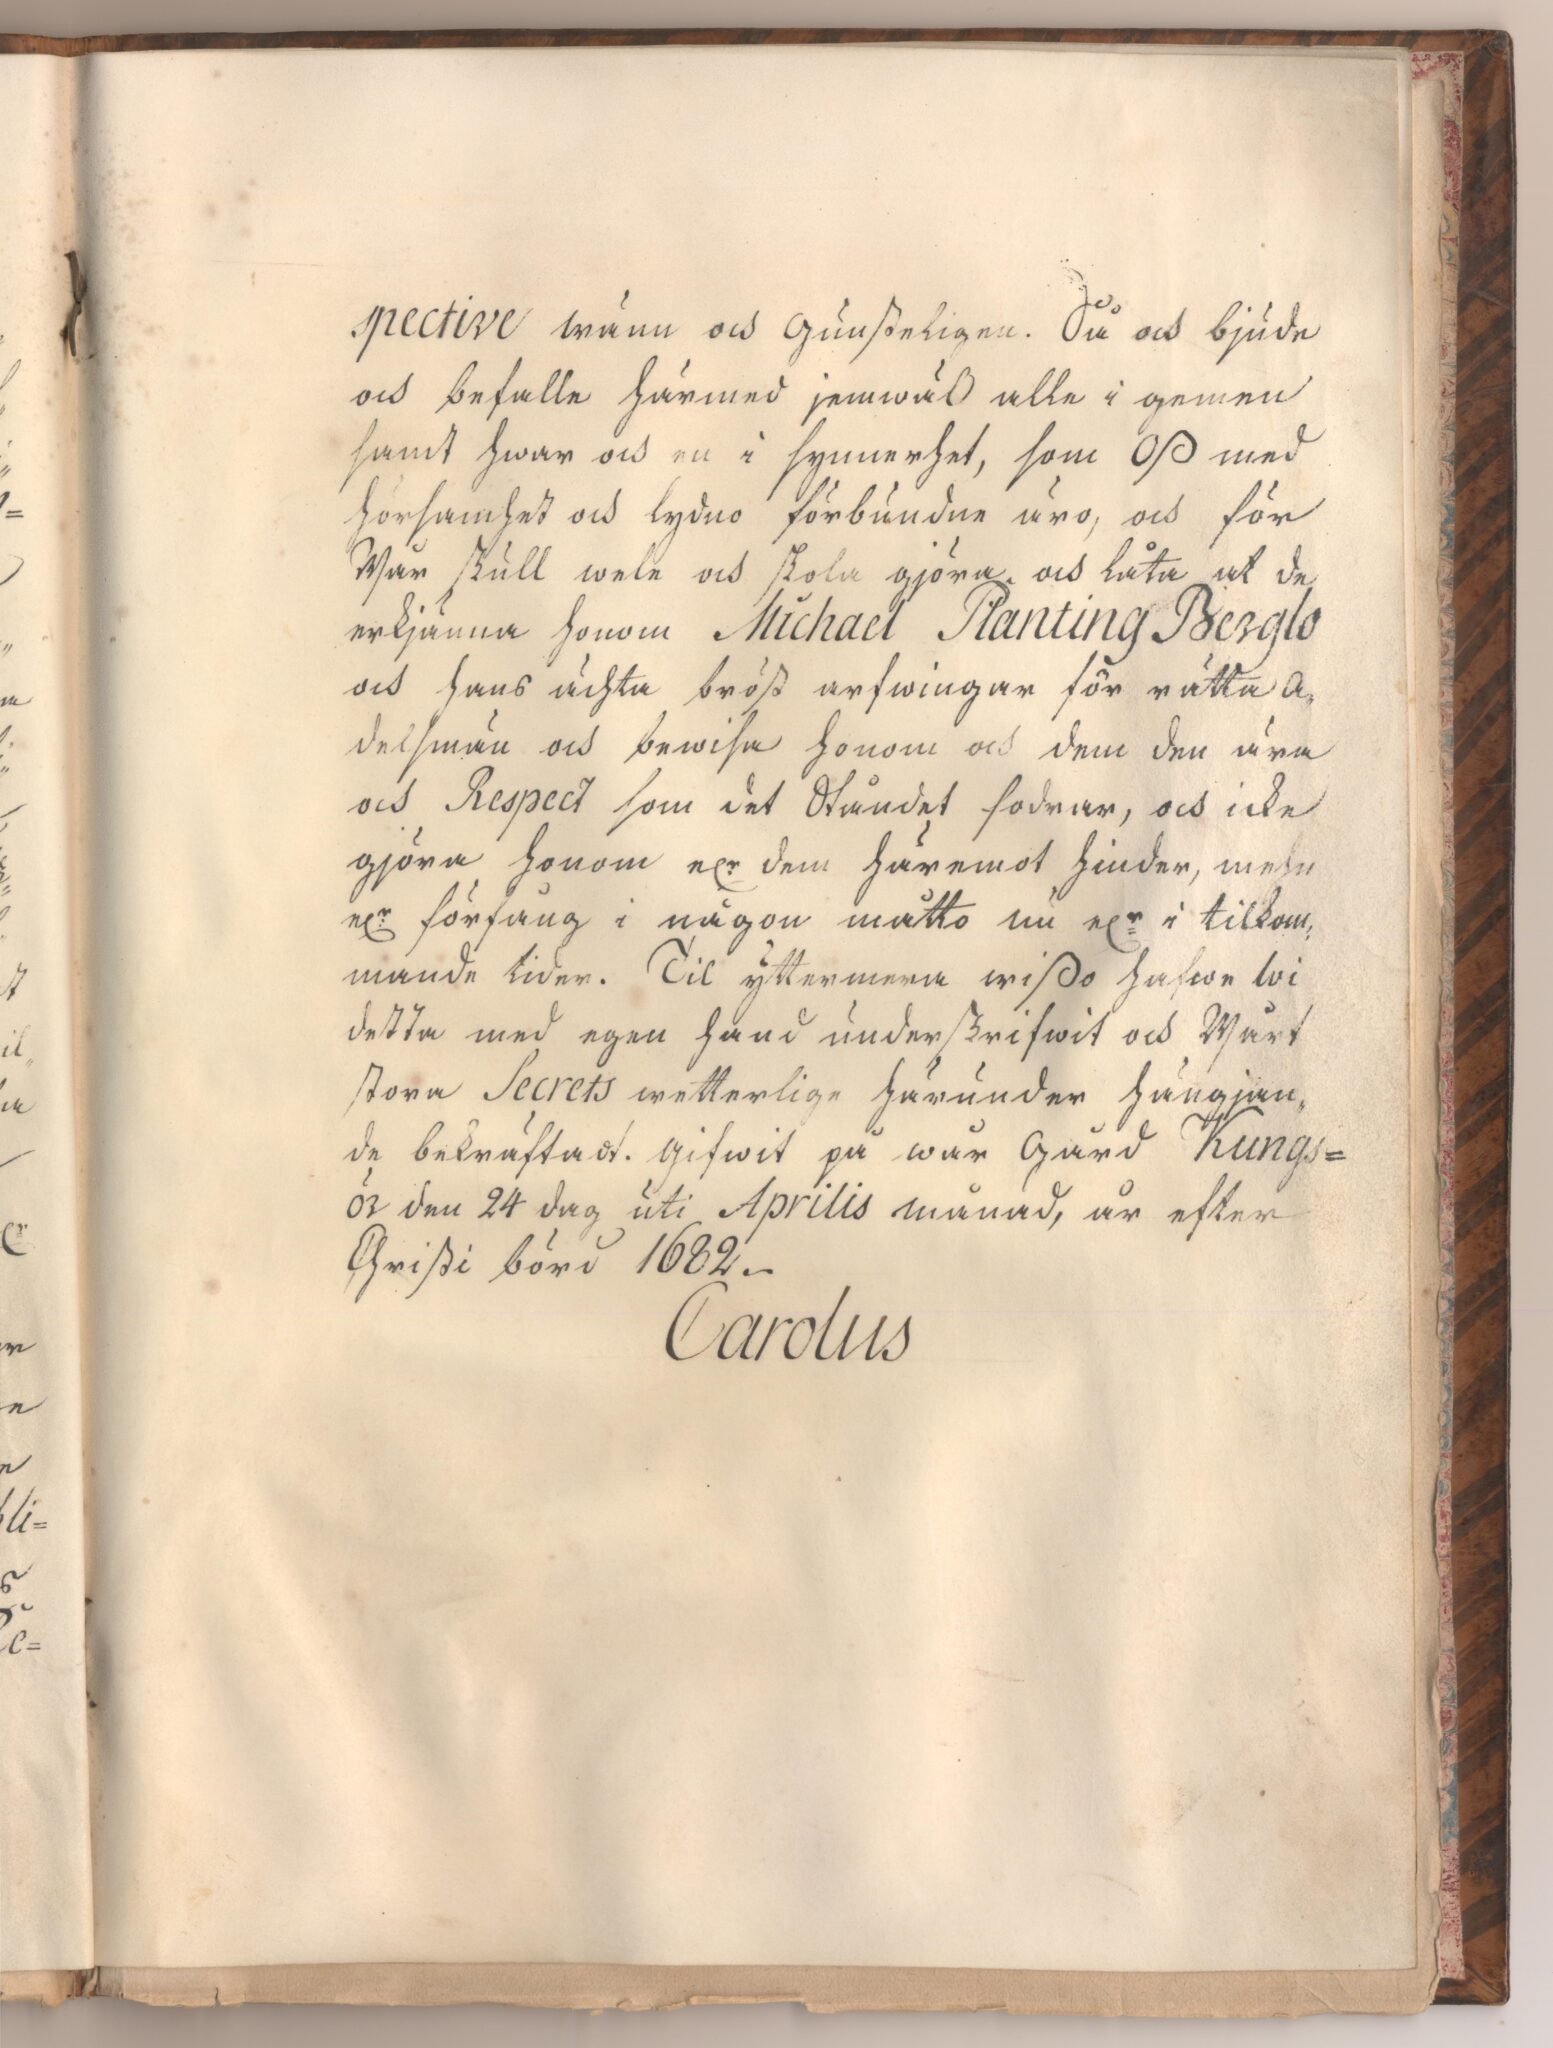 spective wänn och Gunsteligen. Så och bjude
och befalle härmed jemwäl alle i gemen
samt hwar och en i synnerhet, som Oß med
hörsamhet och lydno förbundne äro, och för
Wår skull wele och skola gjöra och låta at de
erkjänna honom Michael Planting Berglo
och hans ächta bröst arfwingar för rätta A„
delsmän och bewisa honom och dem den ära
och Respect som det Ståndet fodrar, och icke
gjöra honom elr dem häremot hinder, mehn
elr förfång i någon måtto nu elr i tilkom„
mande tider. Til yttermera wißo hafwe wi
detta med egen hand underskrifwit och Wårt
stora Secrets wetterlige härunder hängjan„
de bekräftadt. Gifwit på wår Gård Kungs=
ör den 24 dag uti Aprilis månad, år efter
Christi börd 1682.
Carolus